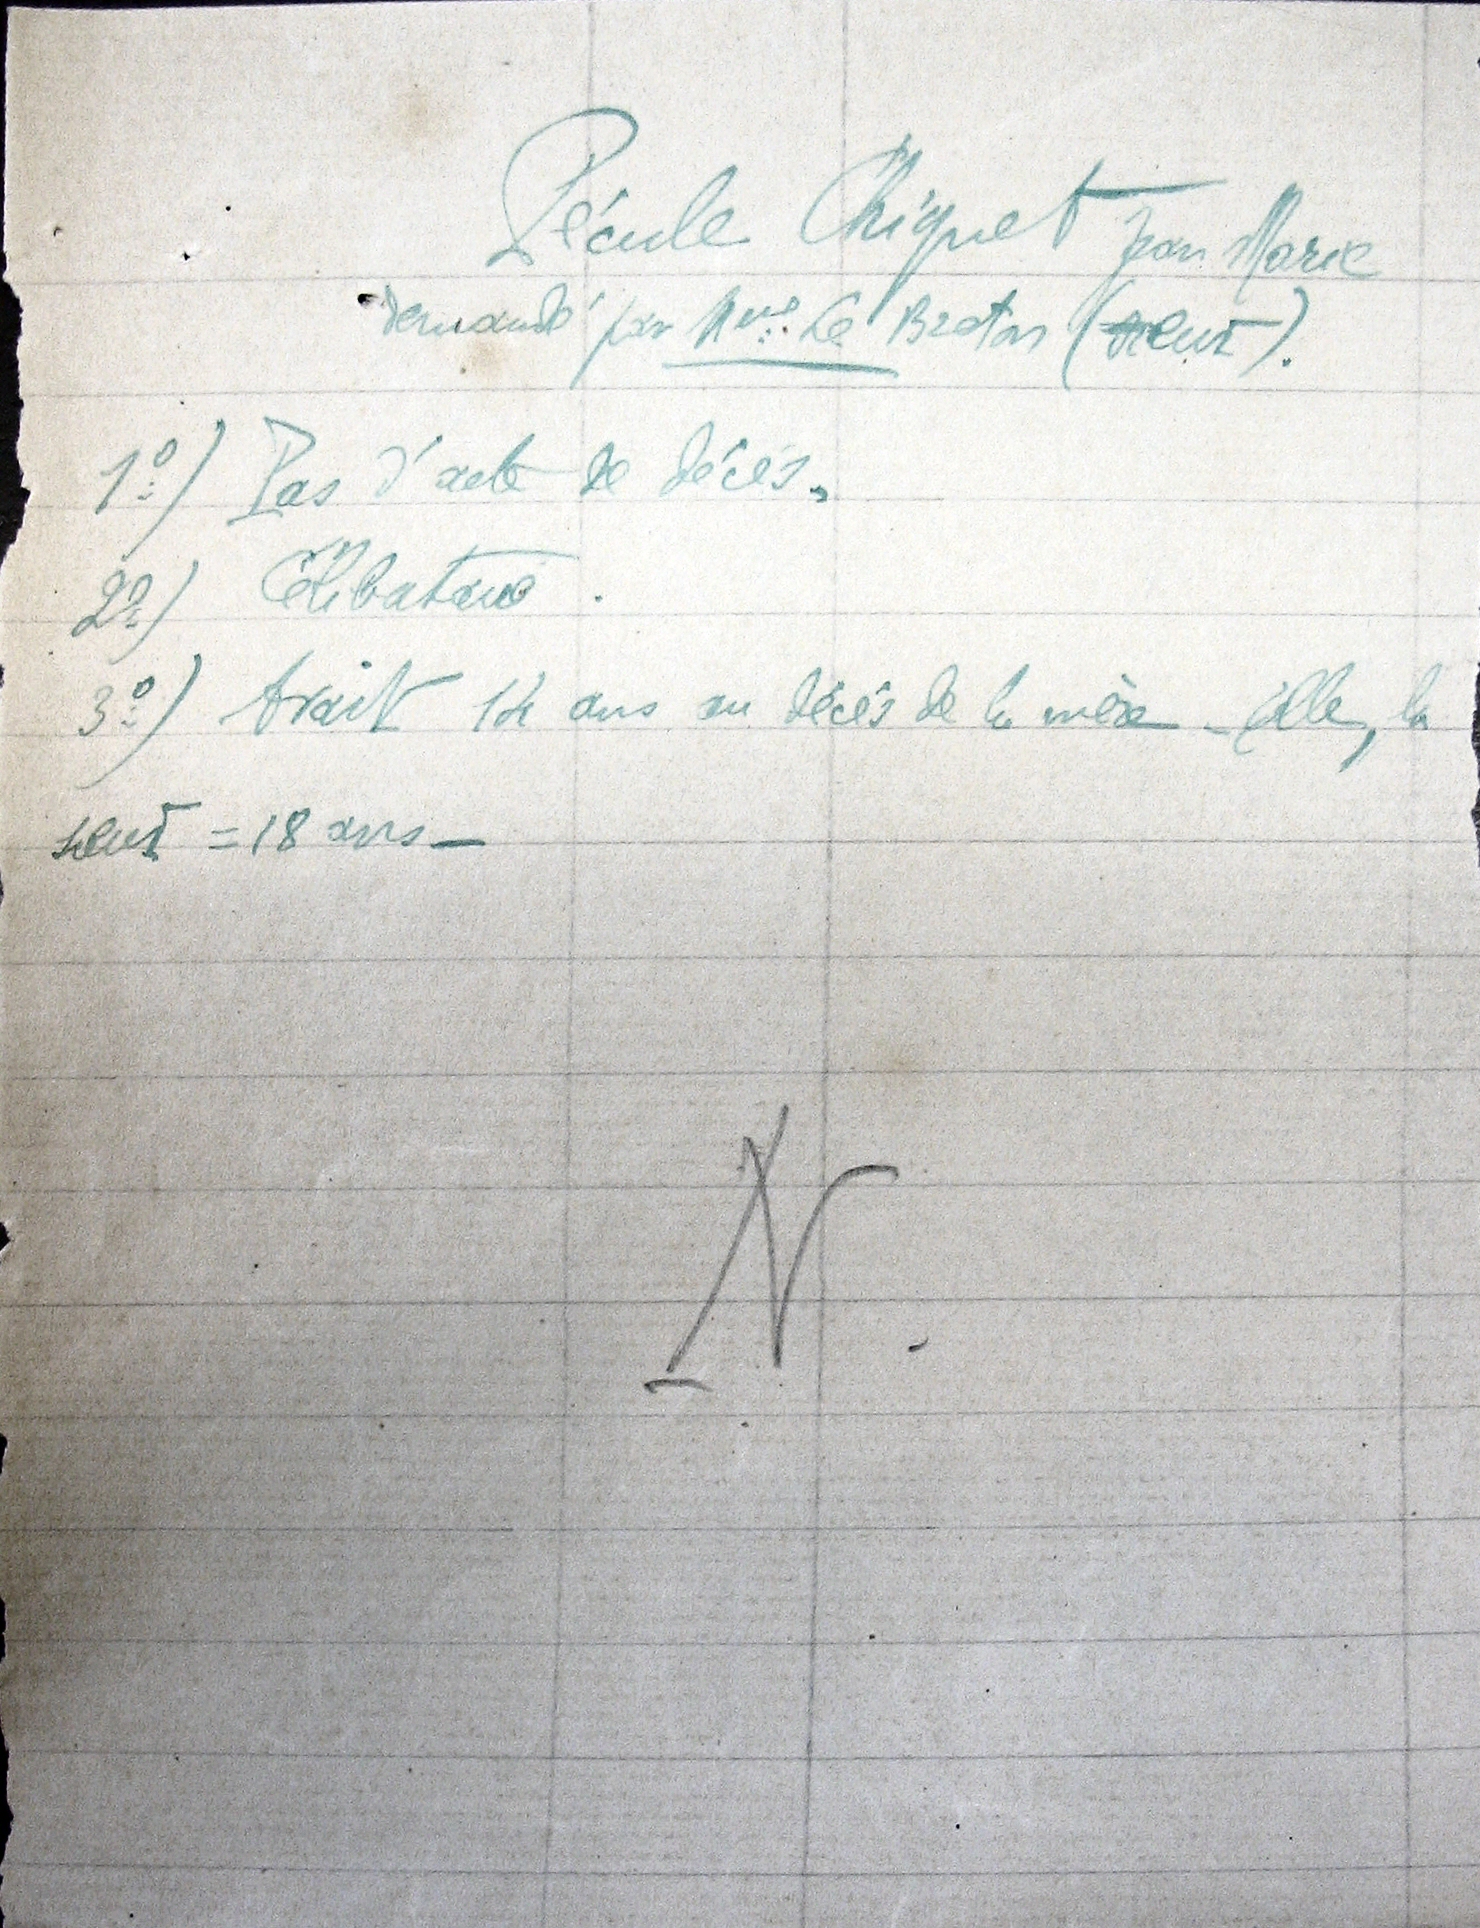 Pécule Chiquet Jean Marie
demandé par Mme Le Breton (sœur).
1º) Pas d'acte de décès.
2º) Célibataire.
3º) Avait 14 ans au décès de la mère - Elle, la
sœur = 18 ans -
N.